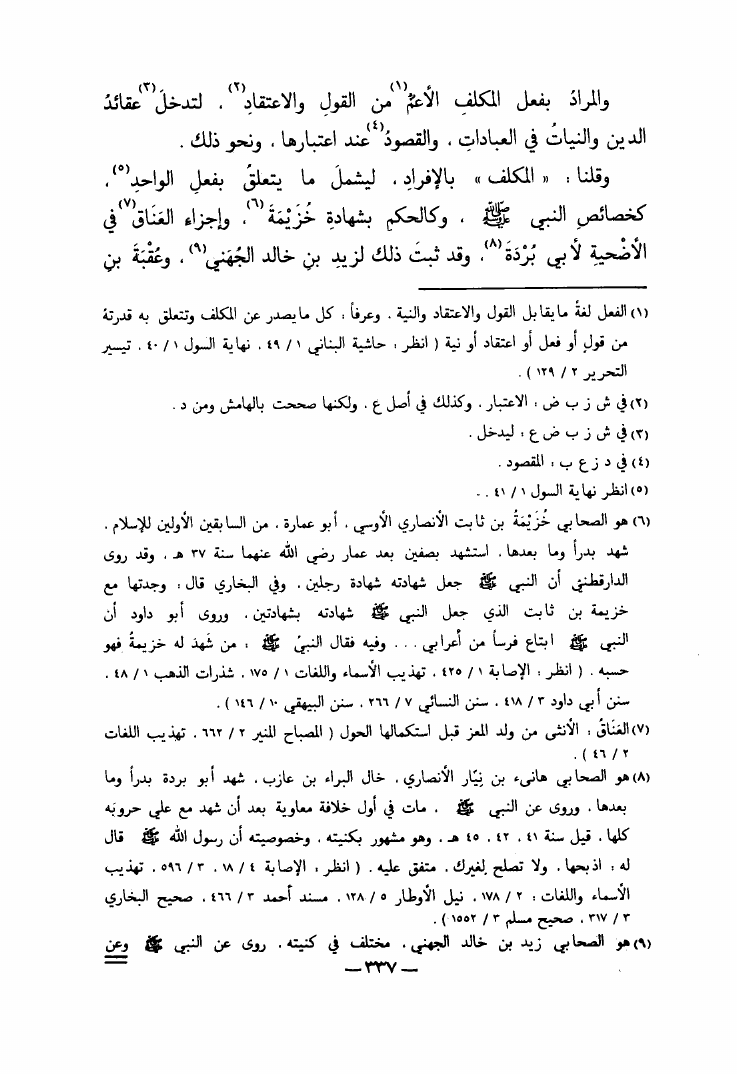 والمرادُ بفعل المكلفِ الأعمُّ(١) من القولِ والاعتقادِ(٢) ، لتدخلَ(٣) عقائدُ
الدين والنياتُ في العباداتِ ، والقصودُ(٤) عند اعتبارها ، ونحو ذلك .
وقلنا : « المكلف » بالإفرادِ ، ليشملَ ما يتعلقُ بفعلِ الواحدِ(٥) ،
كخصائصِ النبي ﷺ ، وكالحكمِ بشهادةِ خُزَيْمَةَ(٦) ، وإجزاء العَنَاقِ(٧) في
الأُضْحيةِ لأبي بُرْدَةَ(٨) ، وقد ثبتَ ذلك لزيدِ بنِ خالد الجُهَني(٩) ، وعُقْبَةَ بنِ
(١) الفعل لغةً ما يقابل القول والاعتقاد والنية . وعرفاً : كل ما يصدر عن المكلف وتتعلق به قدرتة
من قولٍ أو فعل أو اعتقاد أو نية ( انظر : حاشية البناني ١ / ٤٩ ، نهاية السول ١ / ٤٠ ، تيسير
التحرير ٢ / ١٢٩ ) .
(٢) في ش ز ب ض : الاعتبار . وكذلك في أصل ع . ولكنها صححت بالهامش ومن د .
(٣) في ش ز ب ض ع : ليدخل .
(٤) في د ز ع ب : المقصود .
(٥) انظر نهاية السول ١ / ٤١ . .
(٦) هو الصحابي خُزَيْمَةُ بن ثابت الأنصاري الأوسي ، أبو عمارة ، من السابقين الأولين للإسلام ،
شهد بدراً وما بعدها ، استشهد بصفين بعد عمار رضي الله عنهما سنة ٣٧ هـ ، وقد روى
الدارقطني أن النبي ﷺ جعل شهادته شهادة رجلين . وفي البخاري قال : وجدتها مع
خزيمة بن ثابت الذي جعل النبي ﷺ شهادته بشهادتين ، وروى أبو داود أن
النبي ﷺ ابتاع فرساً من أعرابي . . . وفيه فقال النبيُ ﷺ : من شَهِدَ له خزيمةُ فهو
حسبه . ( انظر : الإصابة ١ / ٤٢٥ ، تهذيب الأسماء واللغات ١ / ١٧٥ ، شذرات الذهب ١ / ٤٨ ،
سنن أبي داود ٣ / ٤١٨ ، سنن النسائي ٧ / ٢٦٦ ، سنن البيهقي ١٠ / ١٤٦ ) .
(٧) العَنَاقُ : الأنثى من ولد المعز قبل استكمالها الحول ( المصباح المنير ٢ / ٦٦٢ ، تهذيب اللغات
٢ / ٤٦ ) .
(٨) هو الصحابي هانىء بن نِيَار الأنصاري ، خال البراء بن عازب ، شهد أبو بردة بدراً وما
بعدها ، وروى عن النبي ﷺ ، مات في أول خلافة معاوية بعد أن شهد مع علي حروبَه
كلها ، قيل سنة ٤١ ، ٤٢ ، ٤٥ هـ ، وهو مشهور بكنيته ، وخصوصيته أن رسول الله ﷺ قال
له : اذبحها ، ولا تصلح لغيرك . متفق عليه . ( انظر : الإصابة ٤ / ١٨ ، ٣ / ٥٩٦ ، تهذيب
الأسماء واللغات : ٢ / ١٧٨ ، نيل الأوطار ٥ / ١٢٨ ، مسند أحمد ٣ / ٤٦٦ ، صحيح البخاري
٣ / ٣١٧ ، صحيح مسلم ٣ / ١٥٥٢ ) .
(٩) هو الصحابي زيد بن خالد الجهني ، مختلف في كنيته ، روى عن النبي ﷺ وعن
— ٣٣٧ —